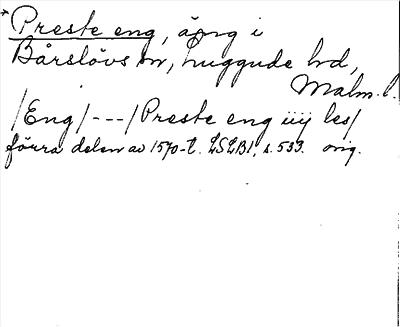 * Preste eng, äng i
Bårslövs sn, Luggude hd,
Malm. l.
/Eng/---/Preste eng iiij les/
förra delen av 1570-t. LSLB1, s. 533. orig.